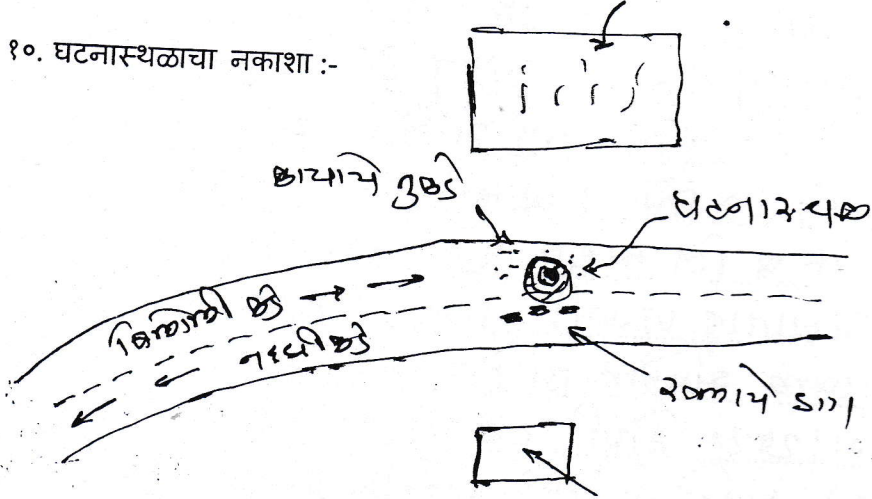 १०. घटनास्थळाचा नकाशा :-
काचाचे तुकडे
घटनास्थळ
बिलोली कडे
नर्सीकडे
रक्ताचे डाग